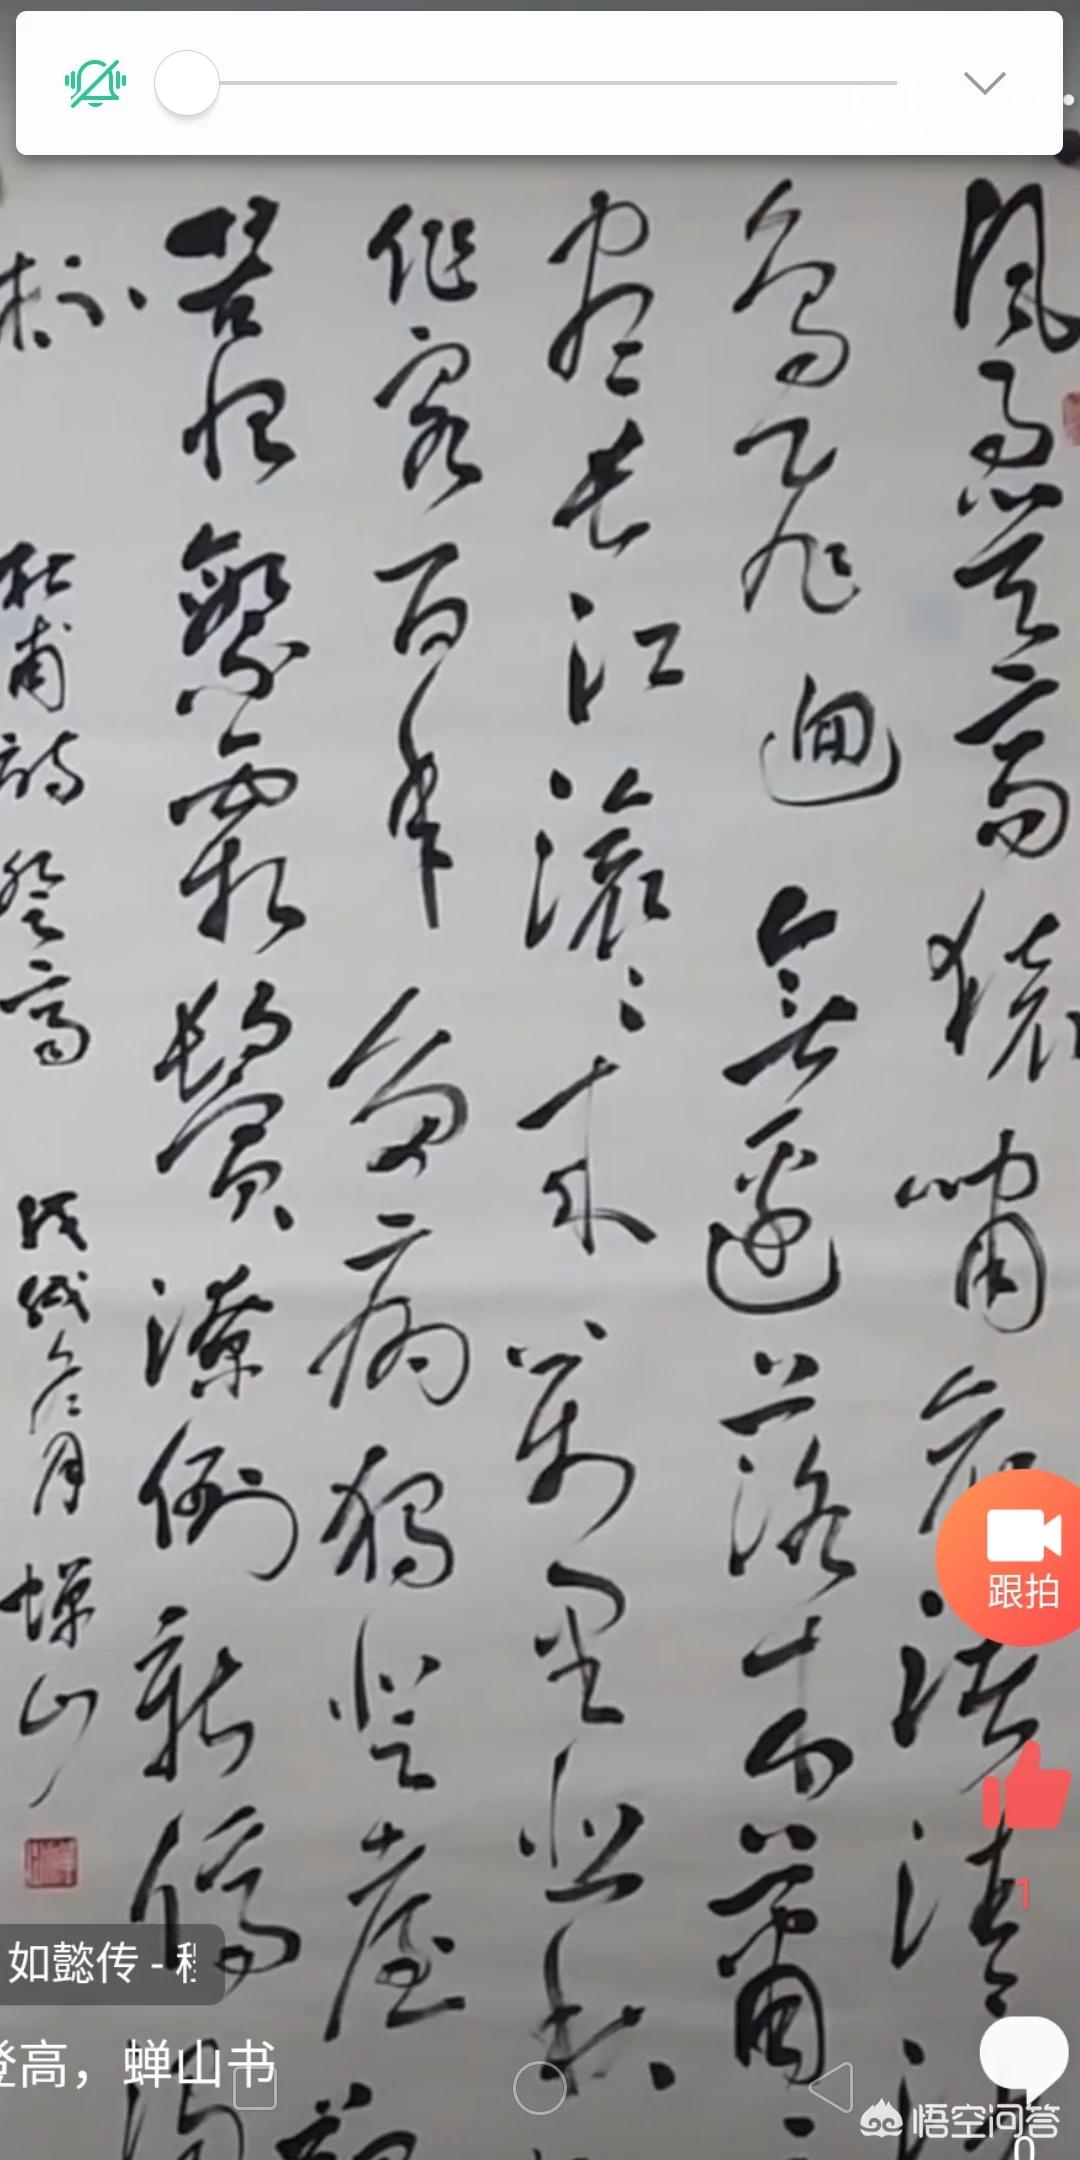 風急天高猿嘯哀渚清沙
鳥飛迴無邊落木蕭
盡長江滾〻來萬里悲秋
作客百年多病獨登臺艱
苦恨繁霜鬢潦倒新停濁
杯
杜甫詩登高
戊戌冬月蟬山
跟拍
1
如懿传 -
登高，蝉山书
0
悟空问答